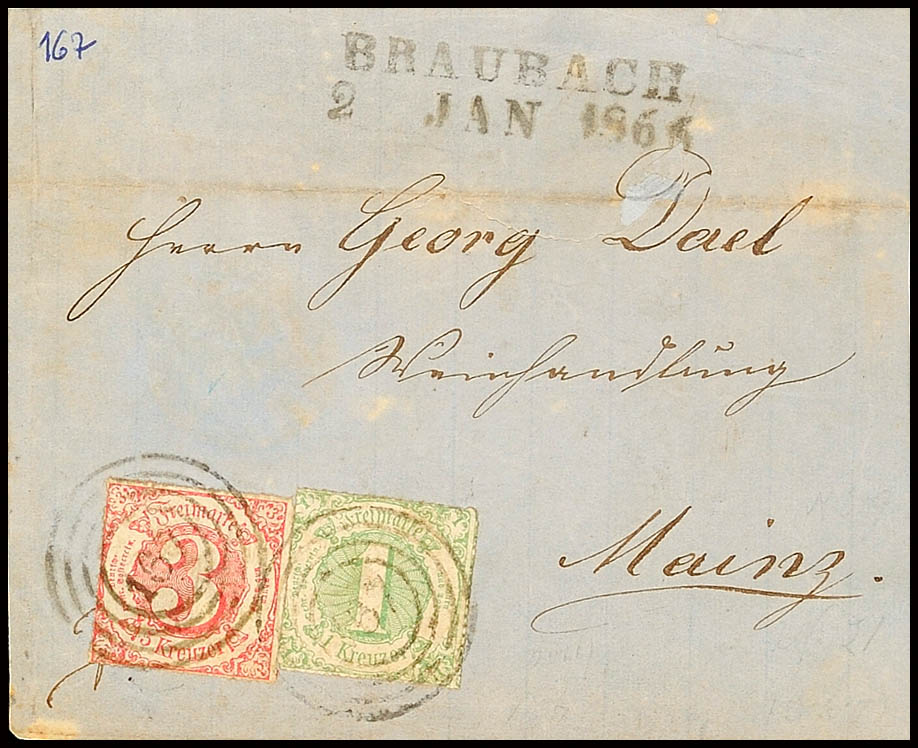 167
BRAUBACH
2 JAN 1866
Herrn Georg Dael
Weinhandlung
Mainz.
Freimarke
3
3 Kreuzer
Freimarke
1
1 Kreuzer